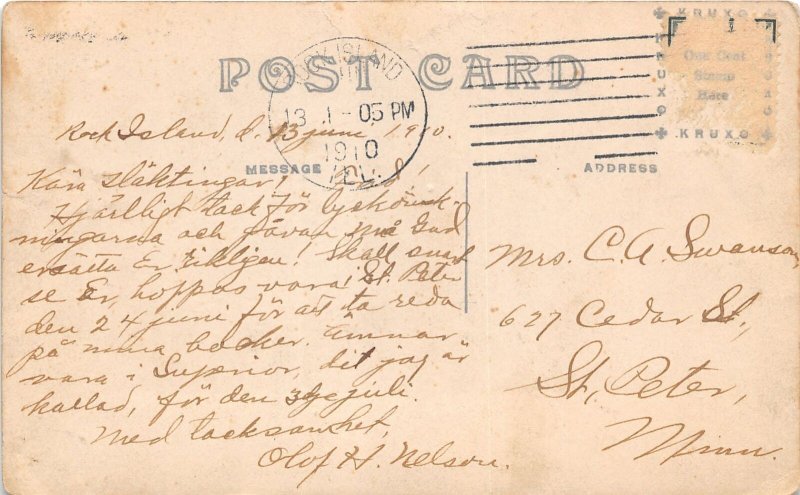 KRUXO
POST CARD
KRUXO
KRUXO
One Cent
Stamp
Here
KRUXO
ROCK ISLAND
13 1-05 PM
1910
ILL.
Rock Island, d. 13 juni 1910.
MESSAGE
ADDRESS
Kära släktingar!
Hjärtligt tack för lyckönsk-
ningarna och gåvan må Gud
ersätta Er rikligen! Skall snart
se Er, hoppas vara i St. Peter
den 24 juni för att ta reda
på mina böcker. Ämnar
vara i Superior, dit jag är
kallad, för den juli.
Med tacksamhet,
Olof H. Nelson.
Mrs. C. A. Swanson,
627 Cedar St,
St. Peter,
Minn.